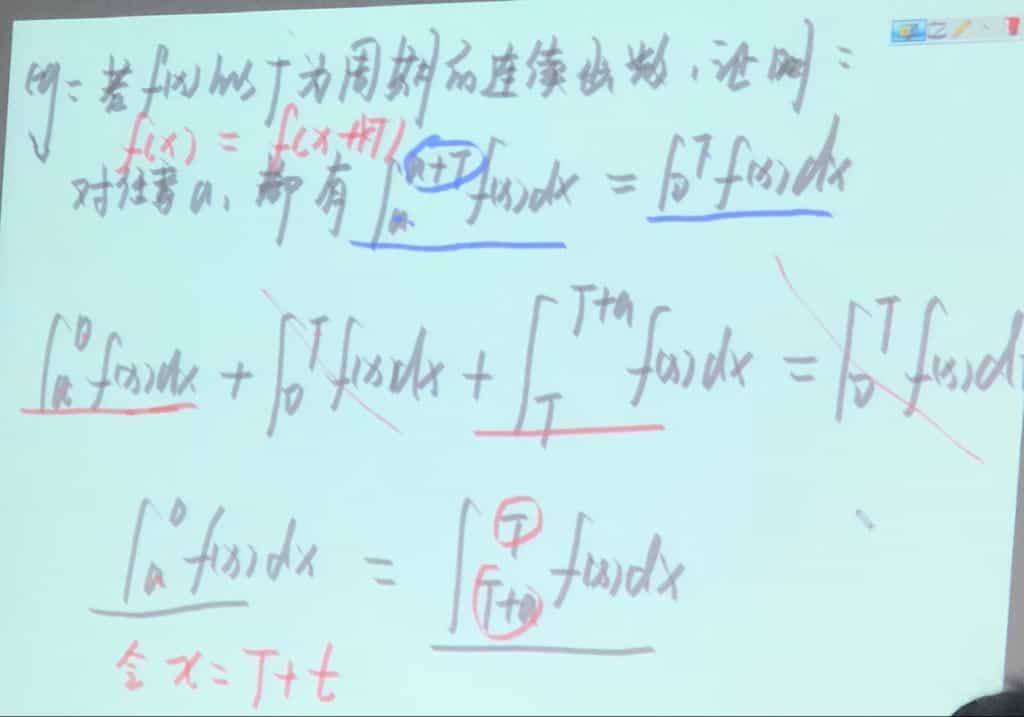 eg: 若 f(x) 以 T 为周期的连续函数，证明：
f(x) = f(x+kT)
对任意 a, 都有 ∫_a^{a+T} f(x)dx = ∫_0^T f(x)dx
∫_a^0 f(x)dx + ∫_0^T f(x)dx + ∫_T^{T+a} f(x)dx = ∫_0^T f(x)d
∫_a^0 f(x)dx = ∫_{T+a}^T f(x)dx
令 x = T+t